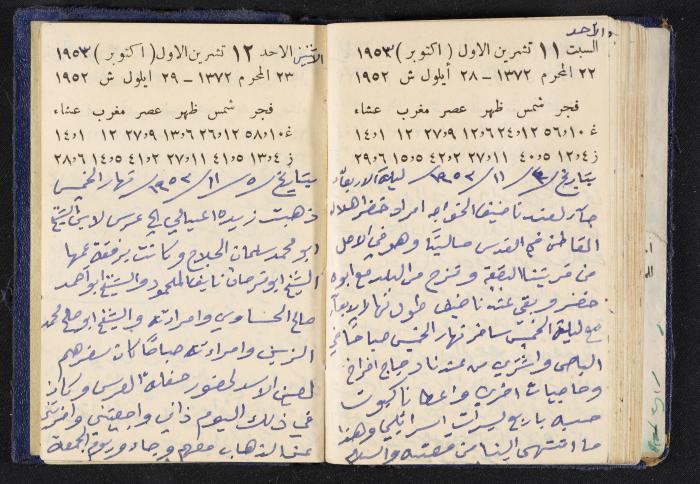 الأحد
السبت ١١ تشرين الاول ( اكتوبر ) ١٩٥٣
٢٢ المحرم ١٣٧٢ – ٢٨ أيلول ش ١٩٥٢
فجر شمس ظهر عصر مغرب عشاء
غ ١٠و٥٦ ١٢و٢٤ ٦و١٢ ٩و٢٧ ١٢ ١و١٤
ز ٤و١٢ ٥و٤٠ ١١و٢٧ ٢و٤٢ ٥و١٥ ٦و٢٩
بتاريخ ٤/ ١١/ ١٩٥٣/ ليلة الاربعاء
صار لعندنا ضيف الخواجه امراد خضر هلال
القاطن في القدس حاليًا وهو في الاصل
من قريتنا البقعة ونزح من البلد مع ابوه
خضر وبقي عندنا ضيف طول نهار الاربعاء
مع ليلة الخميس سافر نهار الخميس صباحًا في
الباص واشترى من عندنا دجاج افراخ
وحاجيات اخرى واعطانا كبوت
جيبه باربع ليرات اسرائيلي وهذا
ما انتهى الينا من قصته والسلام
الاثنين الاحد ١٢ تشرين الاول ( اكتوبر ) ١٩٥٣
٢٣ المحرم ١٣٧٢ – ٢٩ ايلول ش ١٩٥٢
فجر شمس ظهر عصر مغرب عشاء
غ ١٠و٥٨ ١٢و٢٦ ٦و١٣ ٩و٢٧ ١٢ ١و١٤
ز ٤و١٣ ٥و٤١ ١١و٢٧ ٢و٤١ ٥و١٤ ٦و٢٨
بتاريخ ٥/ ١١/ ١٩٥٣/ نهار الخميس
ذهبت زيده اعيالي الى عرس لابن الشيخ
ابو محمد سلمان الحلاج وكانت برفقة عمها
الشيخ ابو ترحان نايف الملحود والشيخ ابو احمد
صالح الحناوي وامراته والشيخ ابو صالح محمد
الزين وامراته صباحًا كان سفرهم
لعين الاسد لحضور حفلة العرس وكان
في ذلك اليوم ذاني واجعتني واخرتني
عن الذهاب معهم وجاءو يوم الجمعة